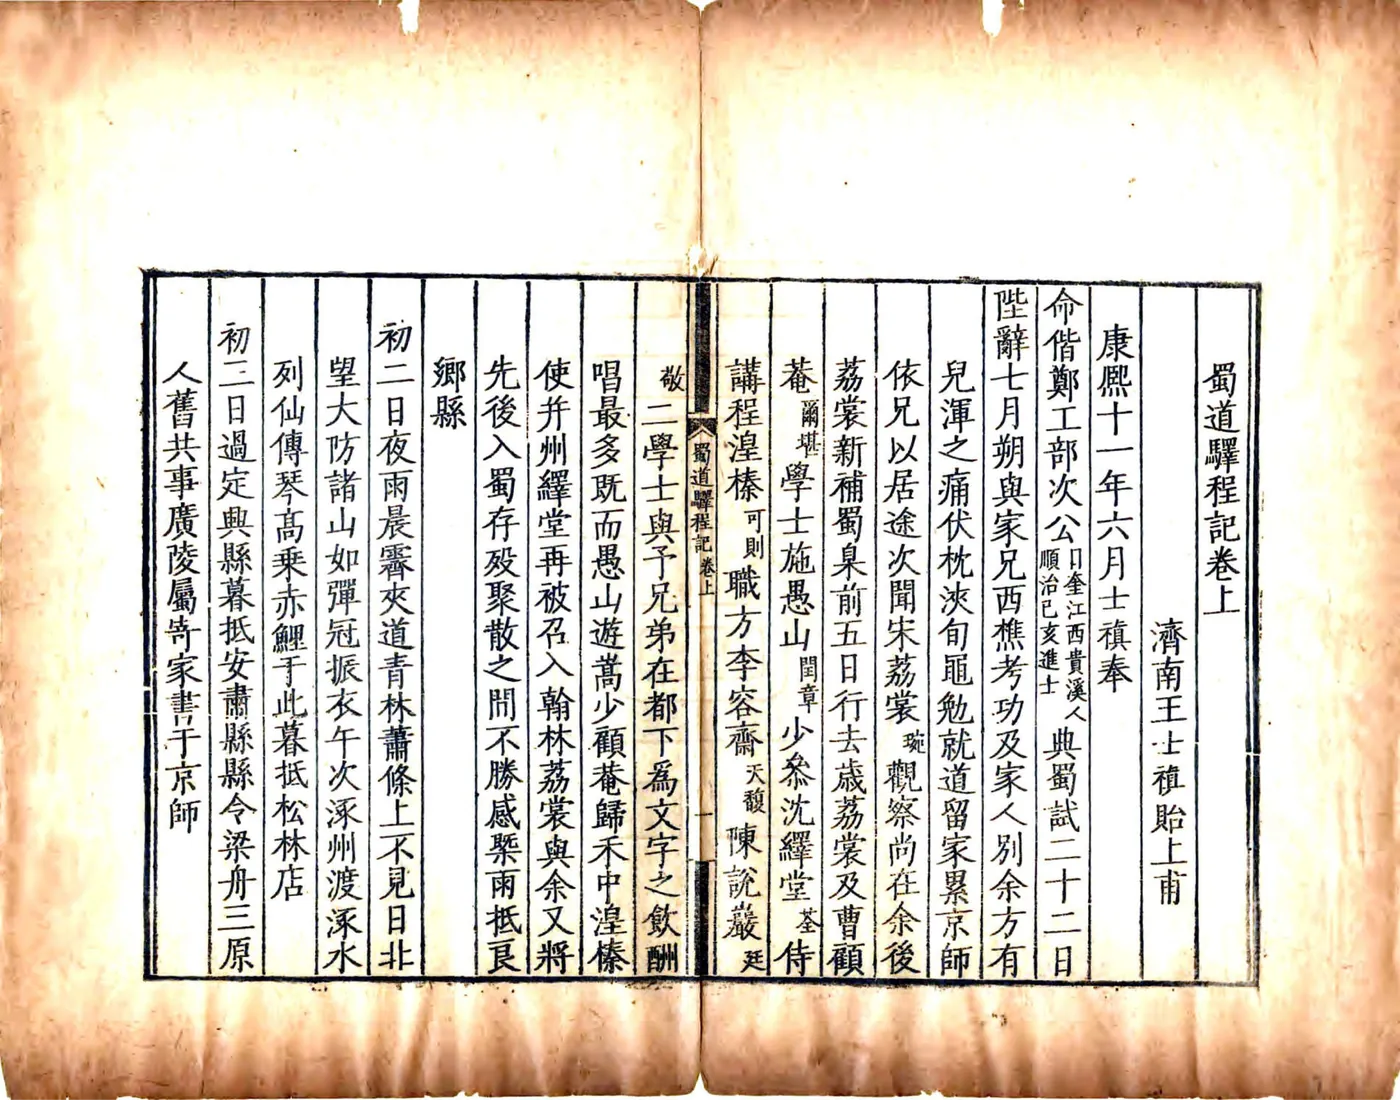 蜀道驛程記卷上
濟南王士禛貽上甫
康熙十一年六月士禛奉
命偕鄭工部次公日奎江西貴溪人順治己亥進士典蜀試二十二日
陛辭七月朔與家兄西樵考功及家人別余方有
兒渾之痛伏枕浹旬黽勉就道留家累京師
依兄以居途次聞宋荔裳琬觀察尚在余後
荔裳新補蜀臬前五日行去歲荔裳及曹顧
菴爾堪學士施愚山閏章少叅沈繹堂荃侍
講程湟榛可則職方李容齋天馥陳說巖廷
蜀道驛程記 卷上 一
敬二學士與予兄弟在都下爲文字之飲酬
唱最多既而愚山遊嵩少顧菴歸禾中湟榛
使并州繹堂再被召入翰林荔裳與余又將
先後入蜀存歿聚散之間不勝感槩雨抵良
鄉縣
初二日夜雨晨霽夾道青林蕭條上不見日北
望大防諸山如彈冠振衣午次涿州渡涿水
列仙傳琴高乘赤鯉于此暮抵松林店
初三日過定興縣暮抵安肅縣縣令梁舟三原
人舊共事廣陵屬寄家書于京師